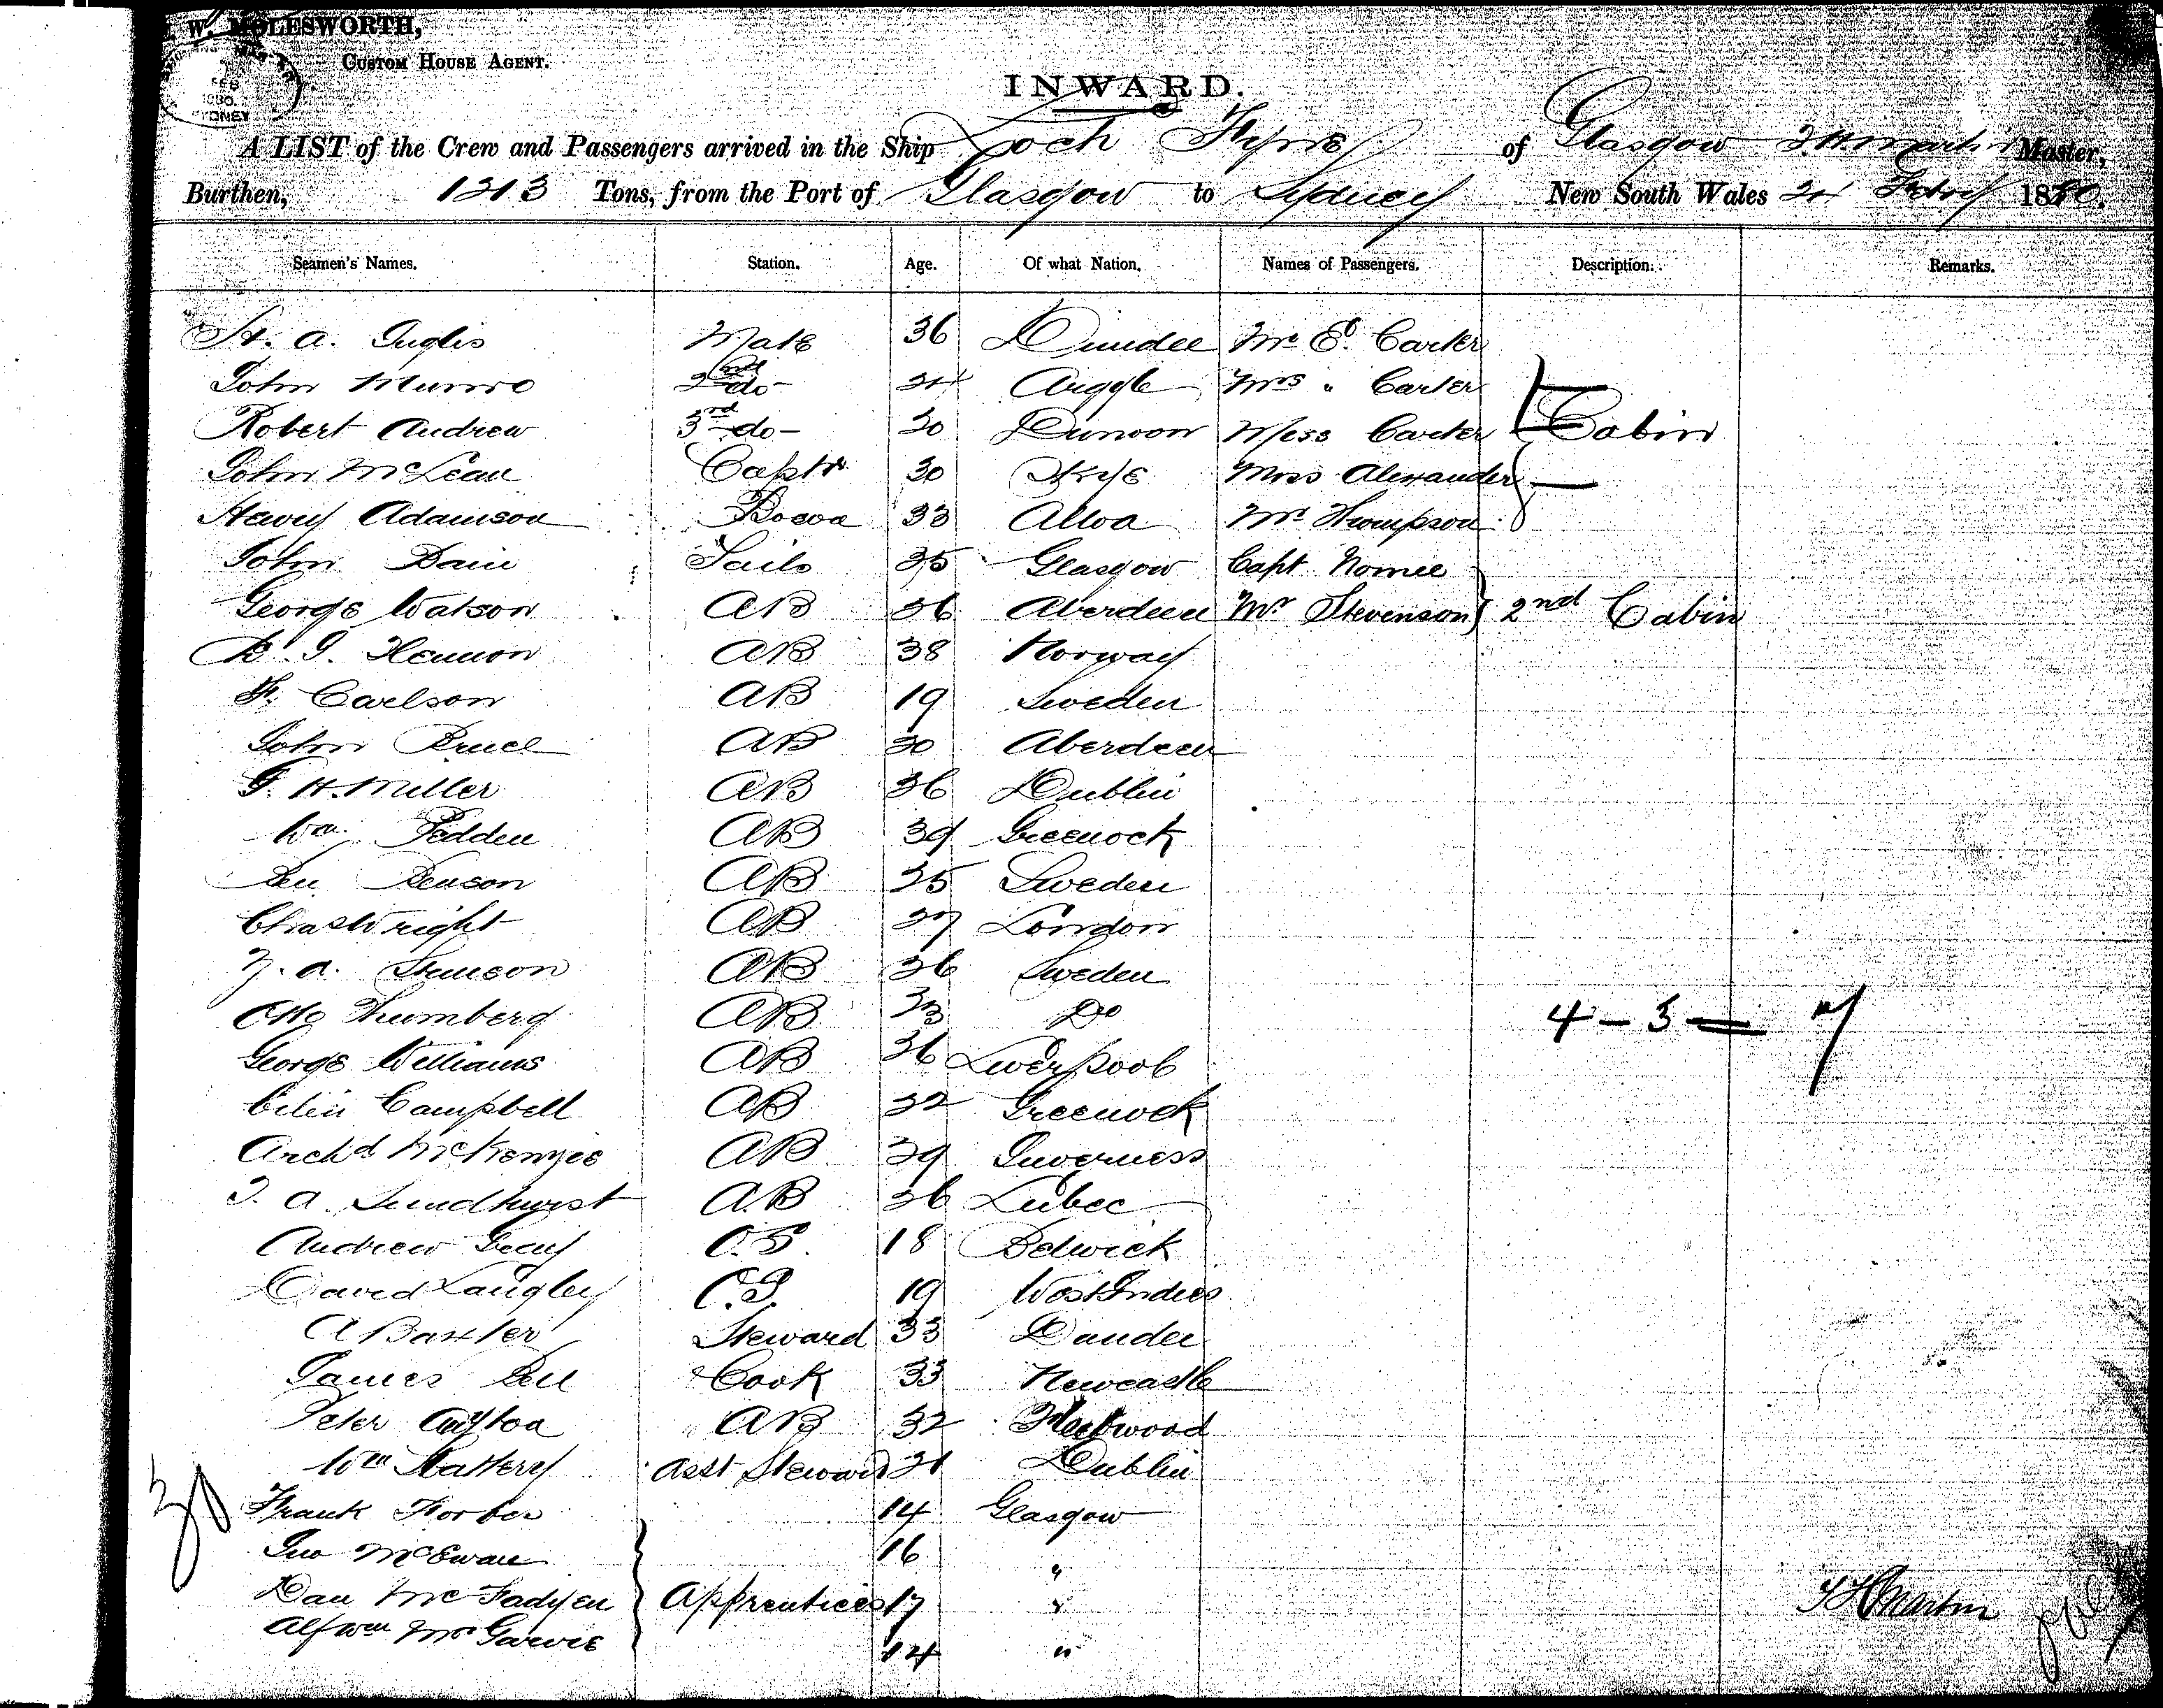 W. MOLESWORTH,
CUSTOM HOUSE AGENT.
FEB
SYDNEY
INWARD.
A LIST of the Crew and Passengers arrived in the Ship Loch Fyne of Glasgow T H Martin Master,
Burthen, 1213 Tons, from the Port of Glasgow to Sydney New South Wales 24 Feby 1880.
Seamen's Names. Station. Age. Of what Nation. Names of Passengers. Description. Remarks.
H. A. Inglis Mate 36 Dundee Mr E. Carter
John Munro 2nd do- 24 Argyle Mrs " Carter
Robert Andrew 3rd do- 20 Dunoon Miss Carter Cabin
John McLean Captr 30 Skye Miss Alexander
Henry Adamson Boson 33 Alloa Mr Thompson
John Bain Sails 25 Glasgow Capt
George Watson AB 26 Aberdeen Mr Stevenson 2nd Cabin
AB 38 Norway
F. Carlson AB 19 Sweden
John Bruce AB 30 Aberdeen
H. Miller AB 36 Dublin
Wm Pedden AB 39 Greenock
AB 25 Sweden
Chas Wright AB 27 London
A. AB 26 Sweden
Otto Thumberg AB 23 Do
4 - 3 = 7
George Williams AB 36 Liverpool
Colin Campbell AB 22 Greenock
Archd McKenzie AB 39 Inverness
A. Lundhurst A.B 26 Lubec
Andrew O.S. 18
David Langley O.S. 19 West Indies
A Baxter Steward 33 Dundee
James Cook 33 Newcastle
Peter Ayton AB 32 Fleetwood
Wm Slattery Asst Steward 21 Dublin
30
Frank Forbes 14 Glasgow
Jno McEwan 16 "
Dan McFadyen Apprentices 17 "
Alf Wm McGarvie 14 "
T H Martin